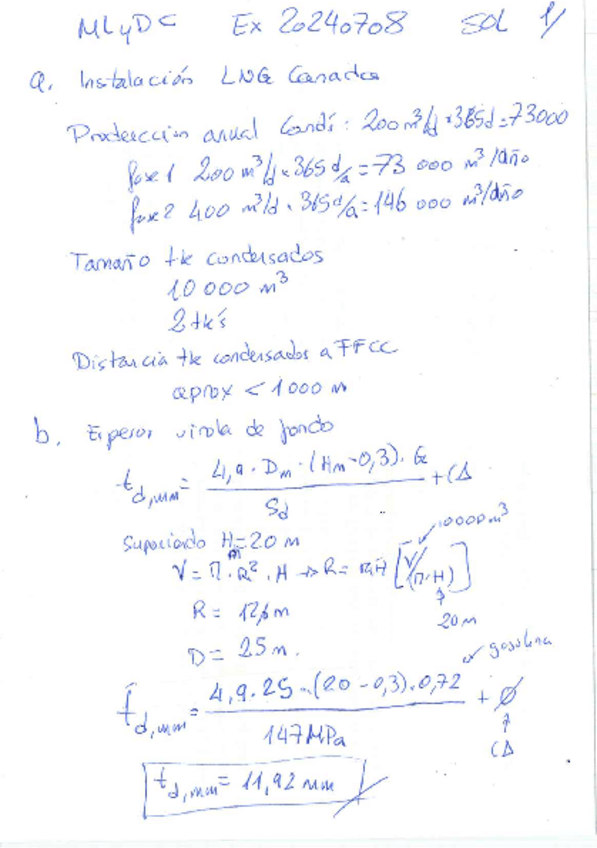 MLyDC Ex 20240708 SOL 1/
a. Instalación LNG Canada
Producción anual Cond's: 200 m³/d * 365d = 73000
fase 1 200 m³/d × 365 d/a = 73 000 m³/año
fase 2 400 m³/d · 365 d/a = 146 000 m³/año
Tamaño tk condensados
10 000 m³
2 tk's
Distancia tk condensados a FFCC
aprox < 1000 m
b. Espesor virola de fondo
t d,mm = 4,9 · Dm · (Hm - 0,3) · G / Sd + CA
Suponiendo H = 20 m
m
10000 m³
V = π · R² · H → R = [V/(π·H)]
R = 12,6 m
20 m
D = 25 m.
gasolina
t d,mm = 4,9 · 25 · (20 - 0,3) · 0,72 / 147 MPa + Ø
CA
t d,mm = 11,92 mm